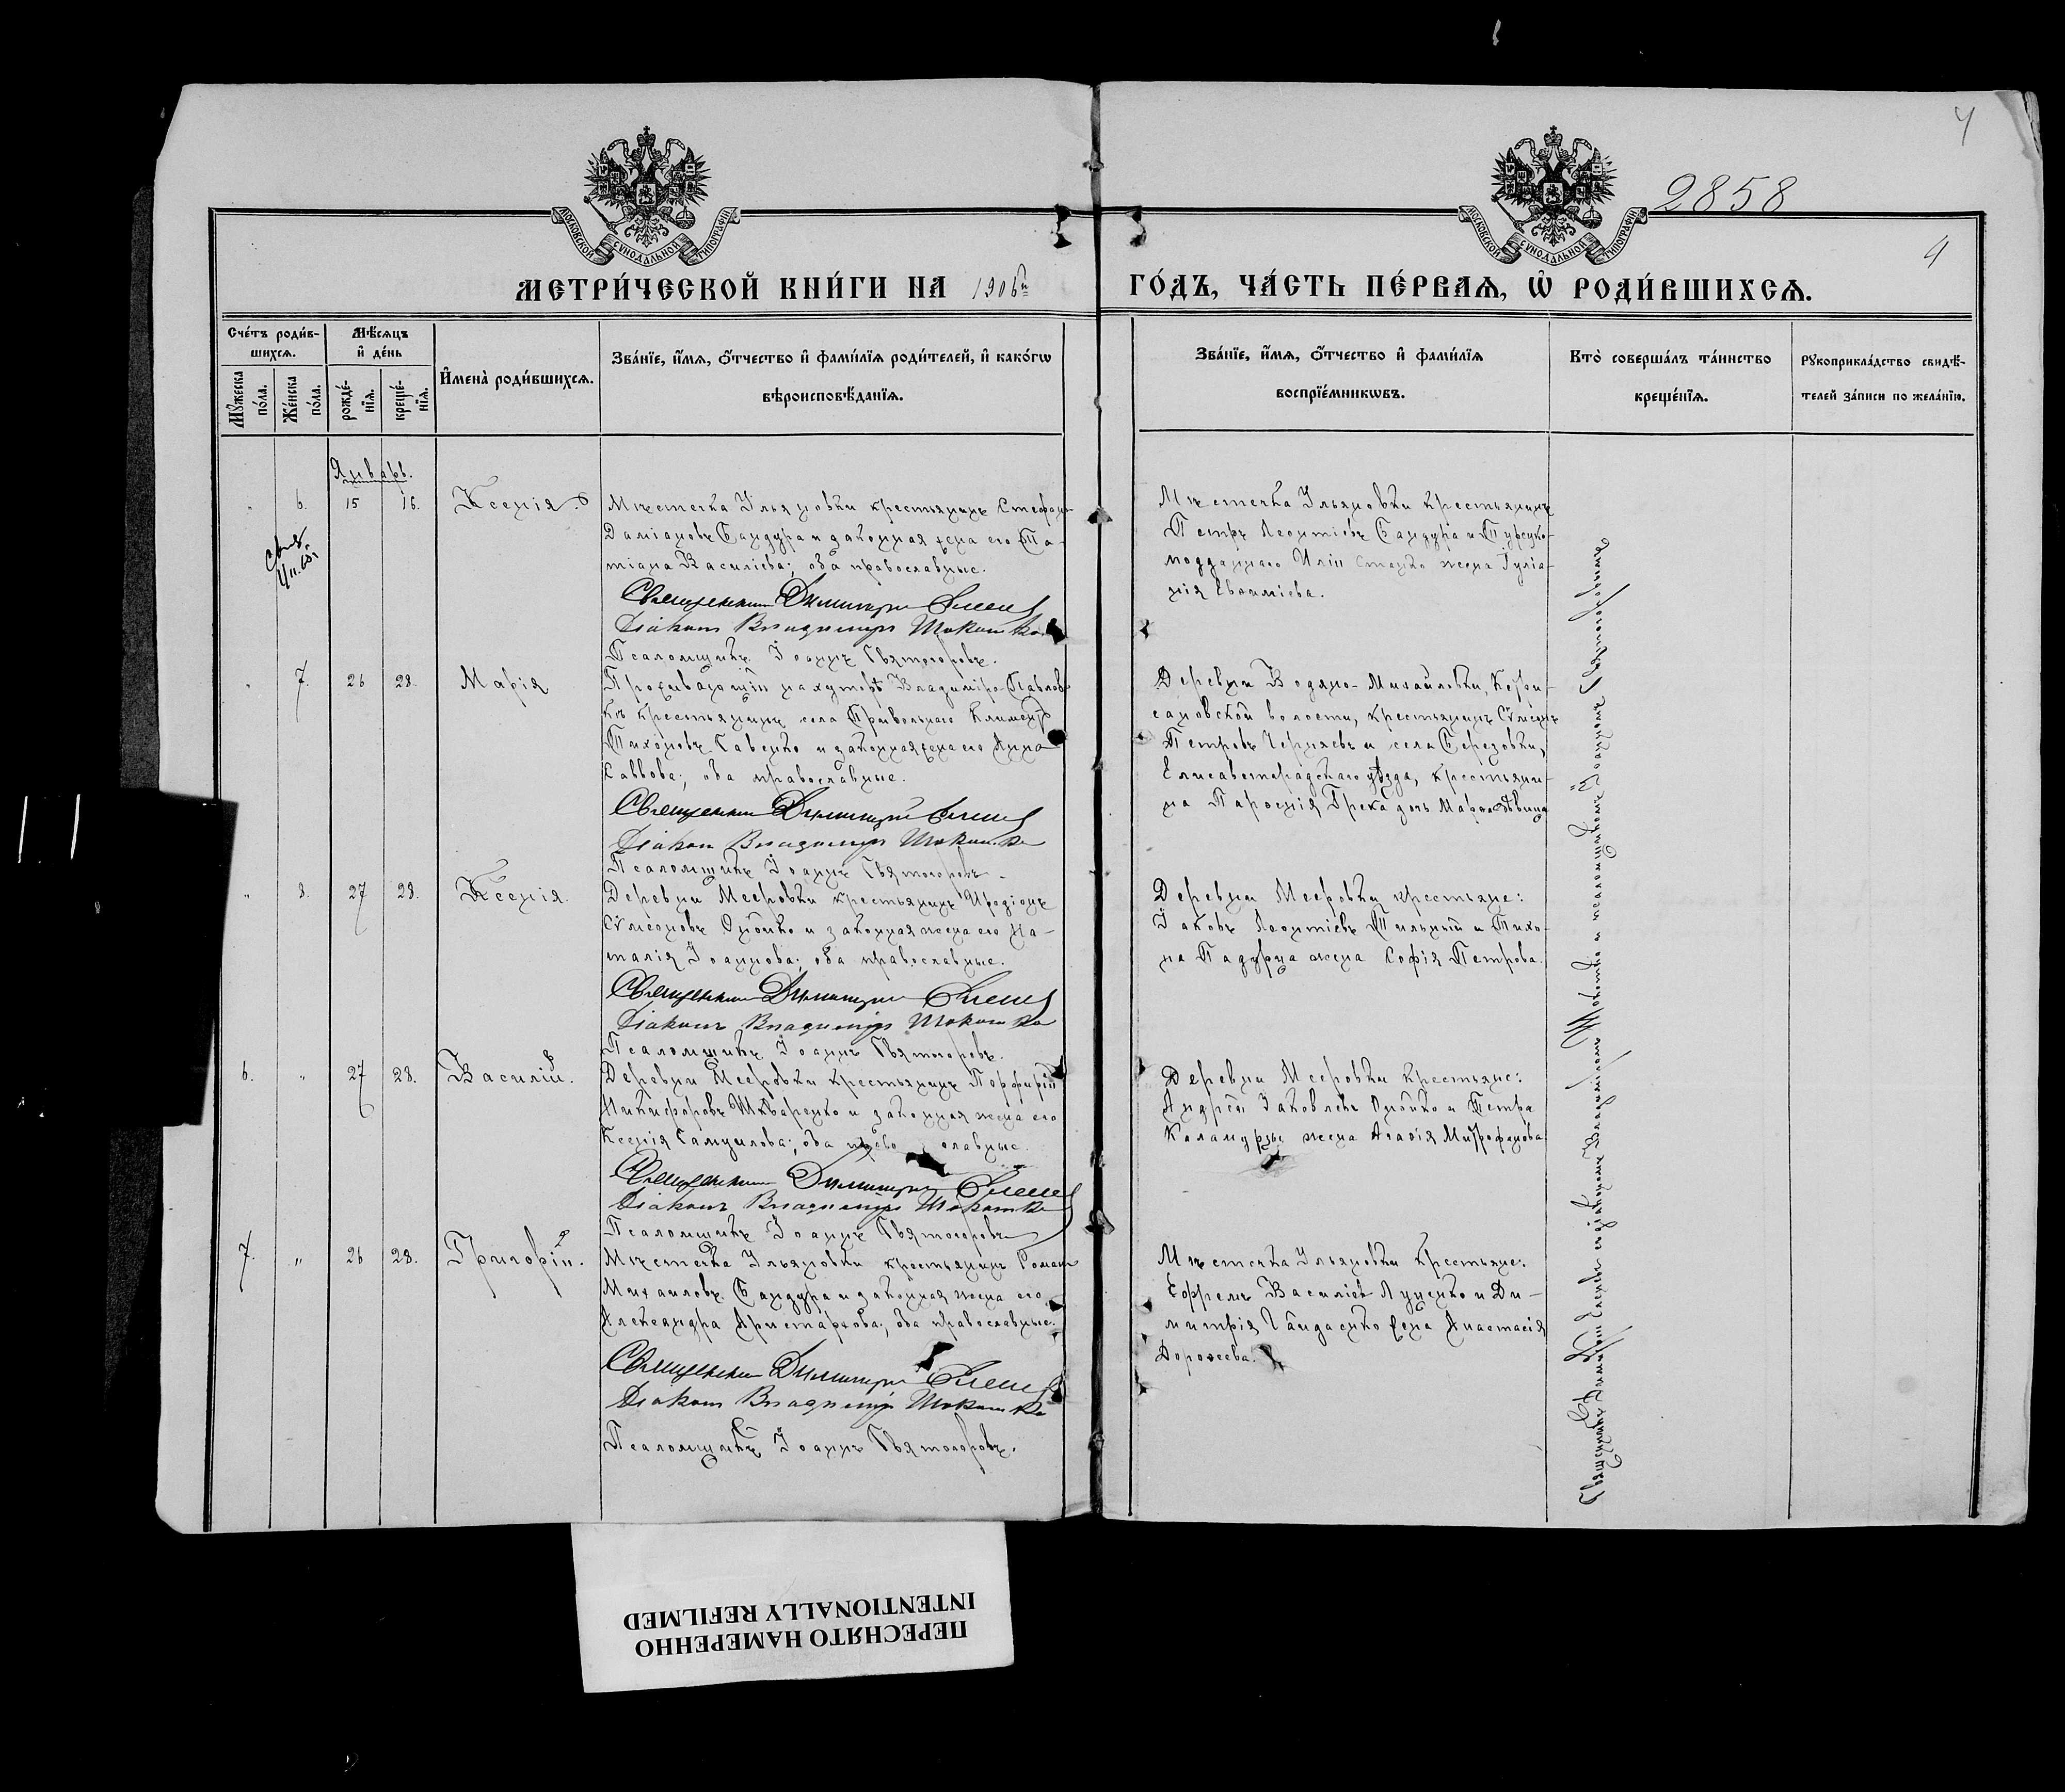 4
2858
4
МОСКОВСКОЙ СѴНОДАЛЬНОЙ ТИПОГРАФІИ
МОСКОВСКОЙ СѴНОДАЛЬНОЙ ТИПОГРАФІИ
МЕТРИ́ЧЕСКОЙ КНИ́ГИ НА 1906й ГО́ДЪ, ЧА́СТЬ ПЕ́РВАѦ, Ѡ҆ РОДИ́ВШИХСѦ.
Сче́тъ роди́в-
шихсѧ.
Мꙋ́жеска по́ла.
Же́нска по́ла.
Мѣ́сѧцъ
и҆ де́нь
рожде́-
нїѧ.
креще́-
нїѧ.
И҆мена̀ роди́вшихсѧ.
Зва́нїе, и҆́мѧ, ѻ҆́тчество и҆ фами́лїѧ роди́телей, и҆ како́гѡ
вѣроисповѣ́данїѧ.
Зва́нїе, и҆́мѧ, ѻ҆́тчество и҆ фами́лїѧ
воспрїе́мникѡвъ.
Кто̀ соверша́лъ та́инство
креще́нїѧ.
Рꙋкоприкла́дство свидѣ́-
телей за́писи по жела́нїю.
Январь.
„ 6. 15 16. Ксенія.
Мѣстечка Ульяновки крестьянинъ Стефанъ
Даміановъ Бандура и законная жена его Та-
тіана Василіева; оба православные.
Священникъ Димитрій
Діаконъ Владиміръ
Псаломщикъ Іоаннъ Святогоровъ.
Мѣстечка Ульяновки крестьянинъ
Петръ Леонтіевъ Бандура и Турецко-
подданнаго Иліи Стецко жена Іуліа-
нія Евѳиміева.
„ 7. 26 28. Марія
Проживающій на хуторѣ Владиміро-Павлов-
кѣ крестьянинъ села Привольнаго Климентъ
Тихоновъ Савенко и законная жена его Анна
Саввова; оба православные.
Священникъ Димитрій
Діаконъ Владиміръ
Псаломщикъ Іоаннъ Святогоровъ.
Деревни Водяно-Михайловки,
волости, крестьянинъ Сѵмеонъ
Петровъ Черняевъ и села Березовки,
Елисаветградскаго уѣзда, крестьяни-
на Грека дочь дѣвица
„ 8. 27 28. Ксенія.
Деревни Мееровки крестьянинъ Иродіонъ
Сѵмеоновъ и законная жена его На-
талія Іоаннова; оба православные.
Священникъ Димитрій
Діаконъ Владиміръ
Псаломщикъ Іоаннъ Святогоровъ.
Деревни Мееровки крестьяне:
Іаковъ Леонтіевъ и Тихо-
на жена Софія Петрова.
6. „ 27 28. Василій.
Деревни Мееровки крестьянинъ Порфирій
Никифоровъ Шкваренко и законная жена его
Ксенія Самуилова; оба православные.
Священникъ Димитрій
Діаконъ Владиміръ
Псаломщикъ Іоаннъ Святогоровъ
Деревни Мееровки крестьяне:
Андрей Іаковлевъ и Петра
жена Агаѳія Митрофанова
7. „ 26 28. Григорій.
Мѣстечка Ульяновки крестьянинъ Романъ
Михаиловъ Бандура и законная жена его
Александра Аристархова; оба православные.
Священникъ Димитрій
Діаконъ Владиміръ
Псаломщикъ Іоаннъ Святогоровъ.
Мѣстечка Ульяновки крестьяне:
Ефремъ Василіевъ Луценко и Ди-
митрія Гайдаенко жена Анастасія
Дороѳеева.
Священникъ Димитрій съ діакономъ Владиміромъ и псаломщикомъ Іоанномъ Святогоровымъ
ПЕРЕСНЯТО НАМЕРЕННО
INTENTIONALLY REFILMED